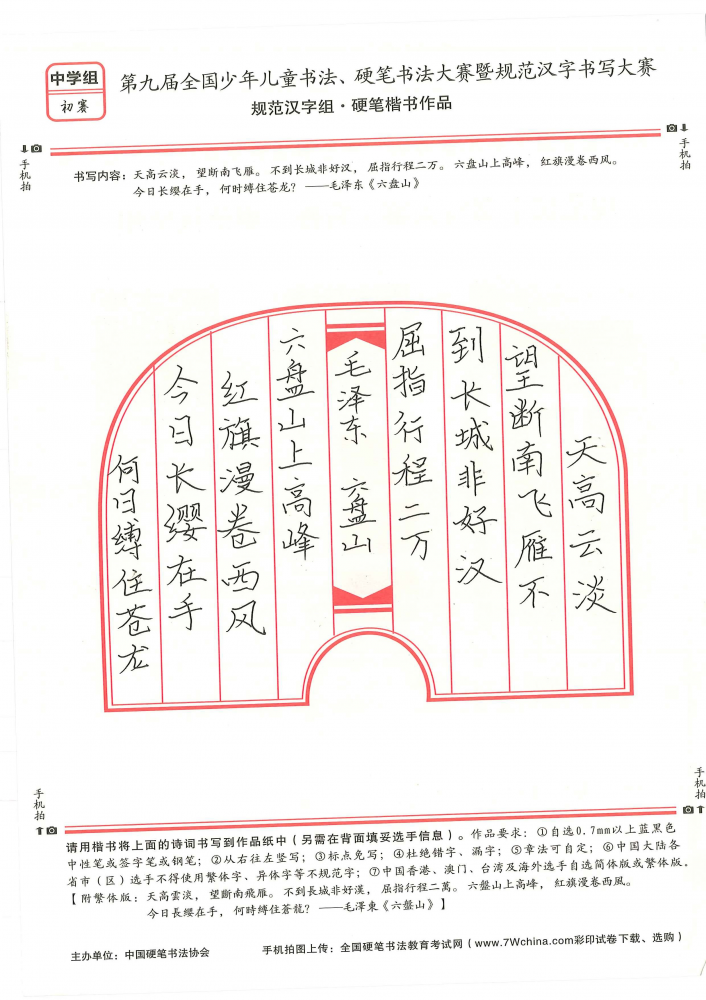 中学组
初赛
第九届全国少年儿童书法、硬笔书法大赛暨规范汉字书写大赛
规范汉字组·硬笔楷书作品
手机拍
手机拍
书写内容：天高云淡，望断南飞雁。不到长城非好汉，屈指行程二万。六盘山上高峰，红旗漫卷西风。
今日长缨在手，何时缚住苍龙？——毛泽东《六盘山》
天高云淡
望断南飞雁不
到长城非好汉
屈指行程二万
毛泽东 六盘山
六盘山上高峰
红旗漫卷西风
今日长缨在手
何日缚住苍龙
手机拍
手机拍
请用楷书将上面的诗词书写到作品纸中（另需在背面填妥选手信息）。作品要求：①自选0.7mm以上蓝黑色
中性笔或签字笔或钢笔；②从右往左竖写；③标点免写；④杜绝错字、漏字；⑤章法可自定；⑥中国大陆各
省市（区）选手不得使用繁体字、异体字等不规范字；⑦中国香港、澳门、台湾及海外选手自选简体版或繁体版。
【附繁体版：天高雲淡，望斷南飛雁。不到長城非好漢，屈指行程二萬。六盤山上高峰，紅旗漫卷西風。
今日長纓在手，何時縛住蒼龍？——毛澤東《六盤山》】
主办单位：中国硬笔书法协会
手机拍图上传：全国硬笔书法教育考试网（www.7Wchina.com彩印试卷下载、选购）